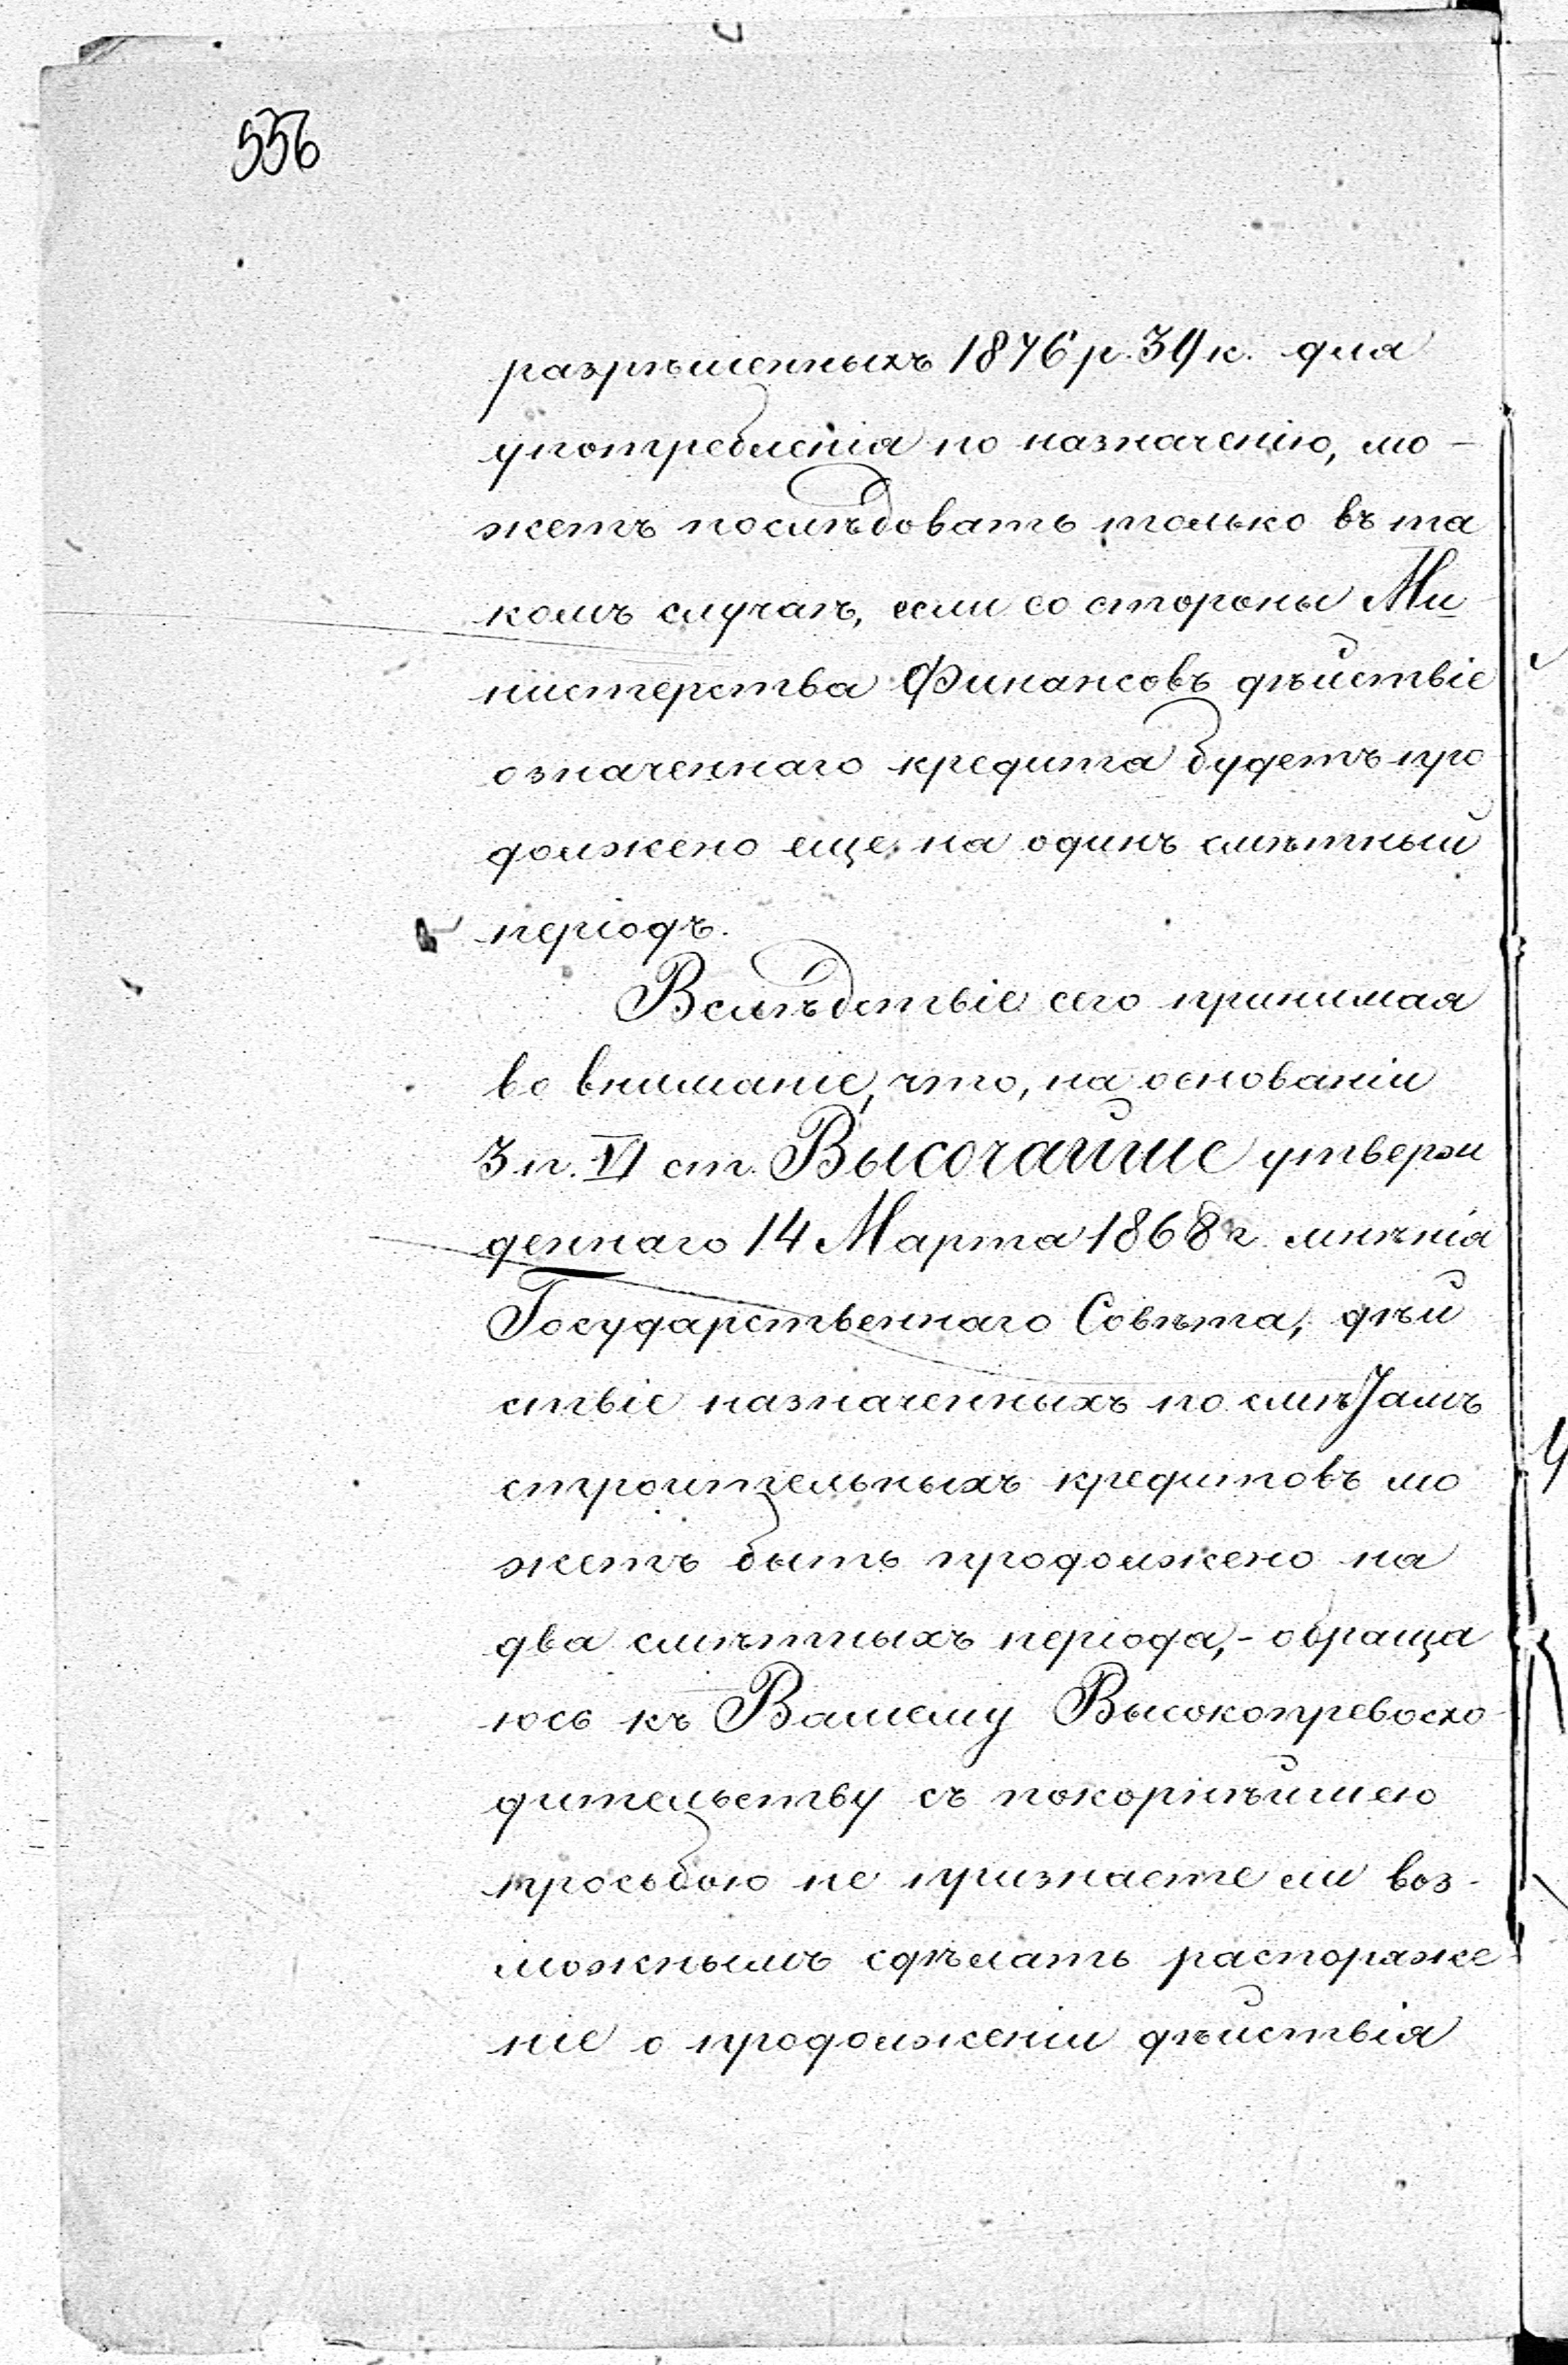 556
разрѣшенныхъ 1876 р. 39 к. для
употребленія по назначенію, мо-
жетъ послѣдовать только въ та
комъ случаѣ, если со стороны Ми
нистерства Финансовъ дѣйствіе
означеннаго кредита будетъ про
должено еще на одинъ смѣтный
періодъ.
Вслѣдствіе сего принимая
во вниманіе, что, на основаніи
3 п. VI ст. Высочайше утверж
деннаго 14 Марта 1868 г. мнѣнія
Государственнаго Совѣта, дѣй
ствіе назначенныхъ по смѣтамъ
строительныхъ кредитовъ мо
жетъ быть продолжено на
два смѣтныхъ періода,- обраща
юсь къ Вашему Высокопревосхо-
дительству съ покорнѣйшею
просьбою не признаете ли воз-
можнымъ сдѣлать распоряже
ніе о продолженіи дѣйствія